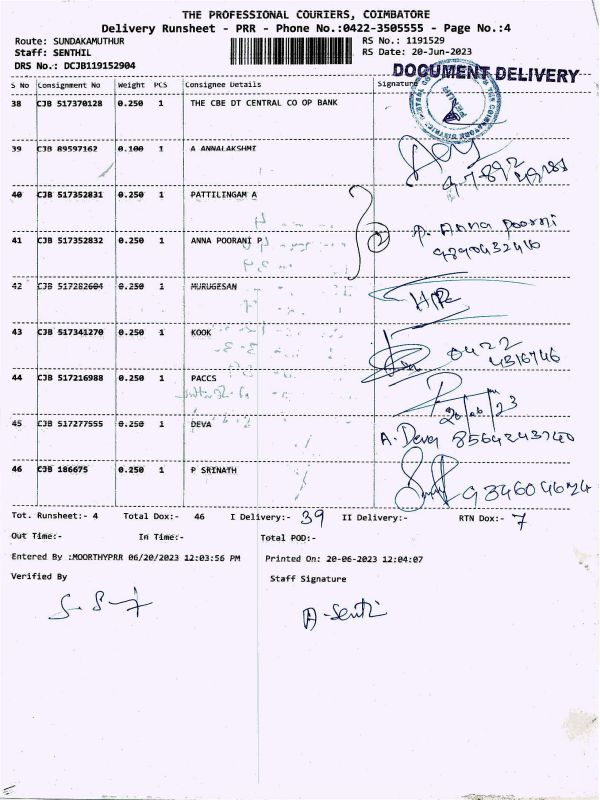 THE PROFESSIONAL COURIERS, COIMBATORE
Delivery Runsheet - PRR - Phone No.:0422-3505555 - Page No.:4
Route: SUNDAKAMUTHUR RS No.: 1191529
Staff: SENTHIL RS Date: 20-Jun-2023
DRS No.: DCJB119152904
DOCUMENT DELIVERY
S No Consignment No Weight PCS Consignee Details Signature
38 CJB 517370128 0.250 1 THE CBE DT CENTRAL CO OP BANK
39 CJB 89597162 0.100 1 A ANNALAKSHMI
40 CJB 517352831 0.250 1 PATTILINGAM A
41 CJB 517352832 0.250 1 ANNA POORANI P P. Anna Poorni
42 CJB 517282604 0.250 1 MURUGESAN
43 CJB 517341270 0.250 1 KOOK 0422
4316746
44 CJB 517216988 0.250 1 PACCS
20/06/23
45 CJB 517277555 0.250 1 DEVA A. Deva 8564243740
46 CJB 186675 0.250 1 P SRINATH
Tot. Runsheet:- 4 Total Dox:- 46 I Delivery:- 39 II Delivery:- RTN Dox:- 7
Out Time:- In Time:- Total POD:-
Entered By :MOORTHYPRR 06/20/2023 12:03:56 PM Printed On: 20-06-2023 12:04:07
Verified By Staff Signature
A-Senti